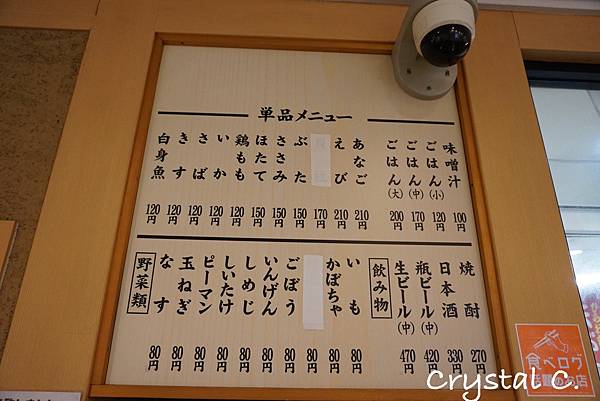 単品メニュー
味噌汁 100円
ごはん(小) 120円
ごはん(中) 170円
ごはん(大) 200円
あなご 210円
えび 210円
170円
ぶた 150円
ささみ 150円
ほたて 150円
鶏もも 120円
いか 120円
さば 120円
きす 120円
白身魚 120円
焼酎 270円
日本酒 330円
瓶ビール(中) 420円
生ビール(中) 470円
飲み物
いも 80円
かぼちゃ 80円
80円
ごぼう 80円
いんげん 80円
しめじ 80円
しいたけ 80円
ピーマン 80円
玉ねぎ 80円
なす 80円
野菜類
食べログ
Crystal C.